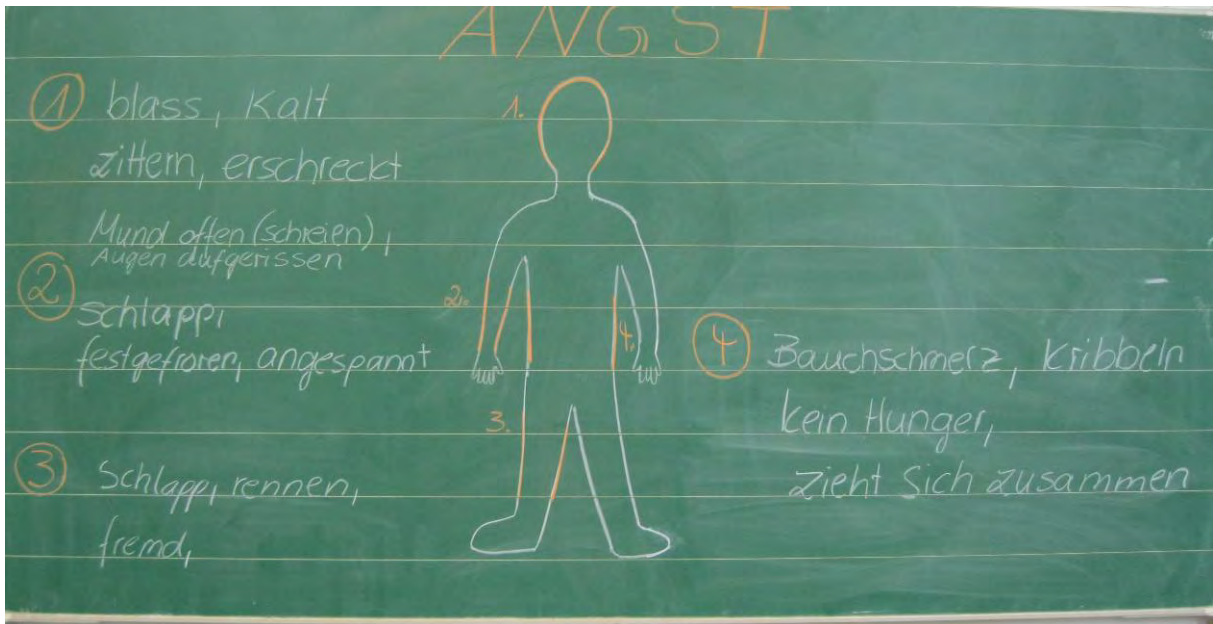 ANGST
① blass, Kalt
zittern, erschreckt
Mund offen (schreien),
Augen aufgerissen
② schlapp,
festgefroren, angespannt
③ Schlapp, rennen,
fremd,
1.
2.
3.
4.
④ Bauchschmerz, kribbeln
kein Hunger,
zieht sich zusammen